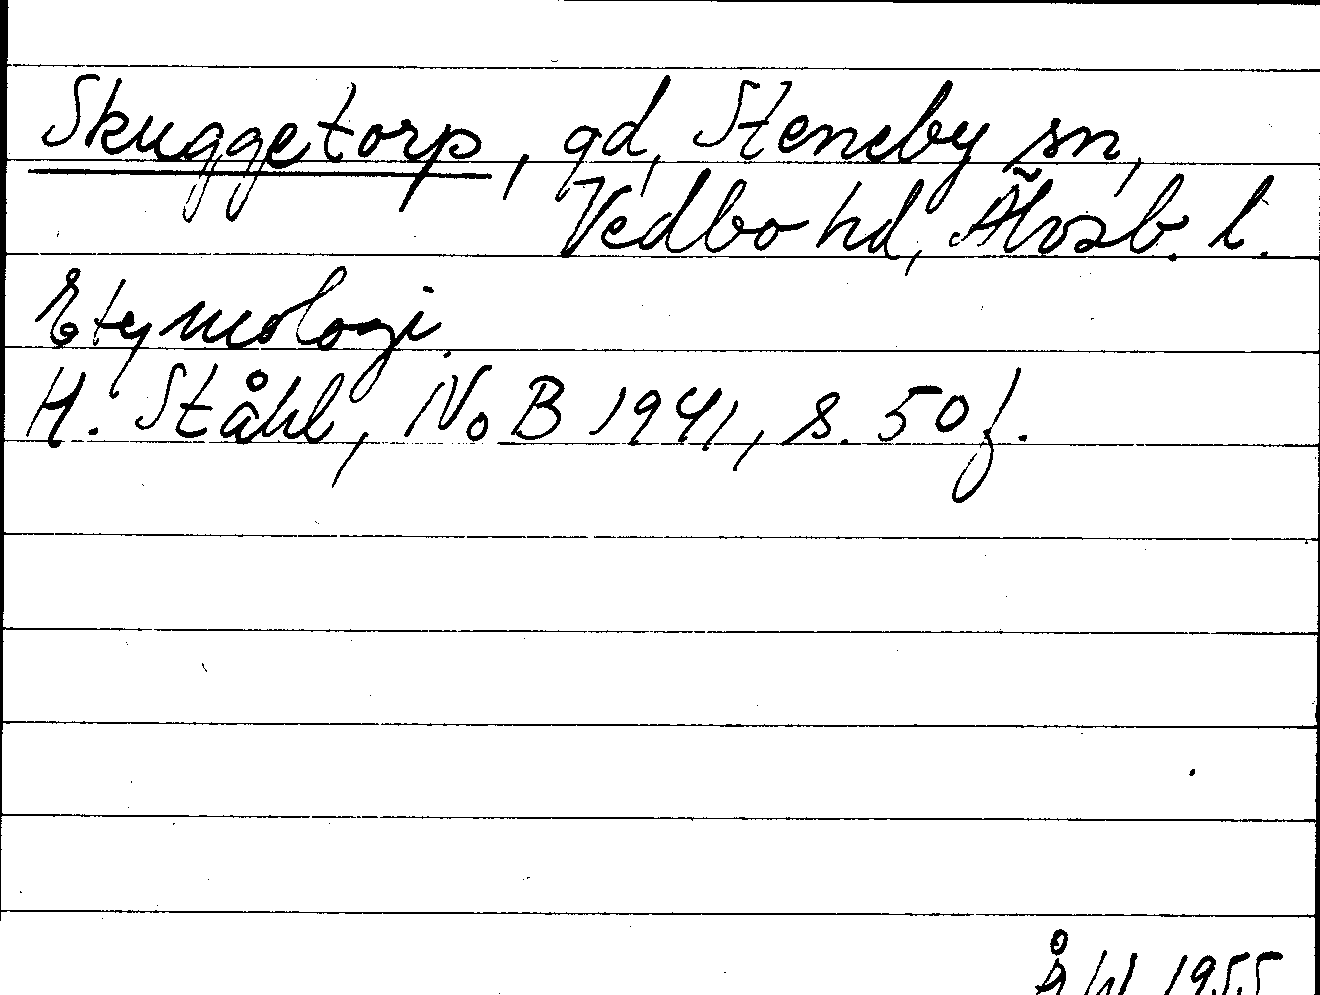 Skuggetorp, gd, Steneby sn,
Vedbo hd, Älvsb. l.
Etymologi.
H. Ståhl, NoB 1941, s. 50 f.
1955